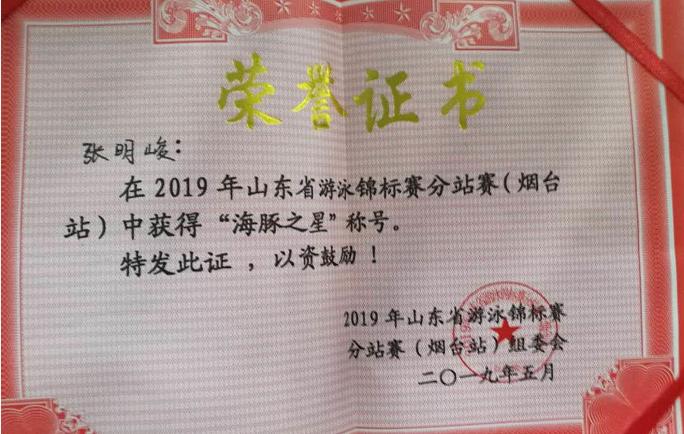 荣誉证书
张明峻：
在2019年山东省游泳锦标赛分站赛（烟台
站）中获得“海豚之星”称号。
特发此证，以资鼓励！
2019年山东省游泳锦标赛
分站赛（烟台站）组委会
二〇一九年五月